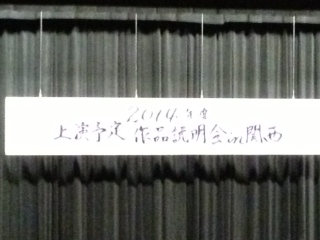 2014年度
上演予定 作品説明会in関西